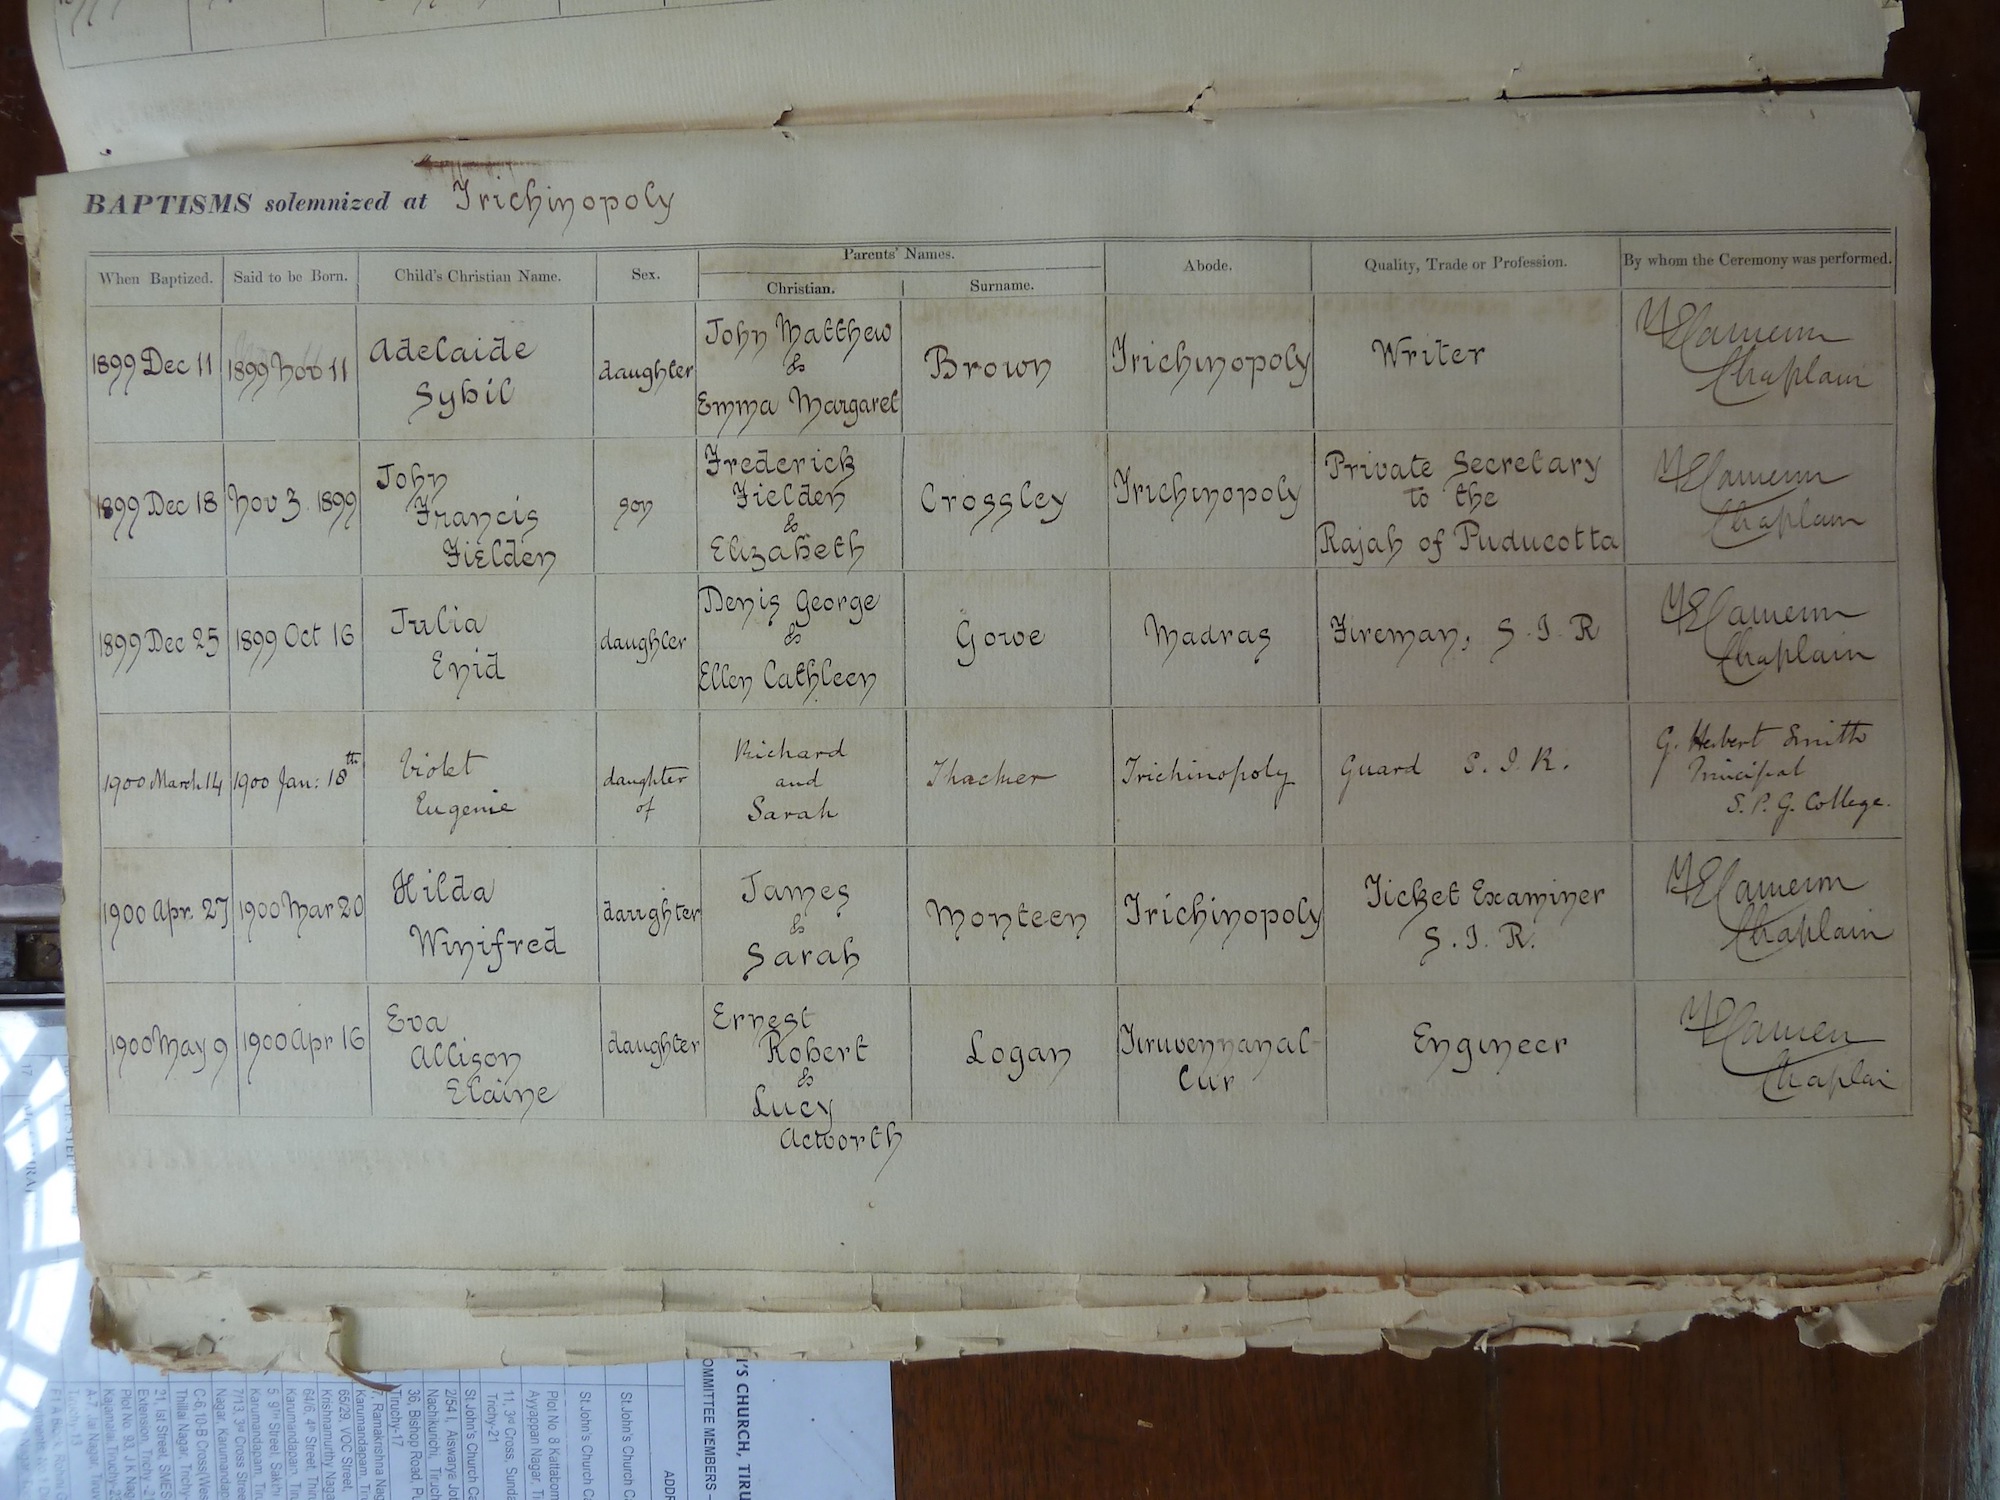 BAPTISMS solemnized at Trichinopoly
When Baptized. Said to be Born. Child's Christian Name. Sex. Parents' Names. Abode. Quality, Trade or Profession. By whom the Ceremony was performed.
Christian. Surname.
1899 Dec 11 1899 Nov 11 Adelaide Sybil daughter John Matthew & Emma Margaret Brown Trichinopoly Writer M E Cameron Chaplain
1899 Dec 18 Nov 3 1899 John Francis Fielden son Frederick Fielden & Elizabeth Crossley Trichinopoly Private Secretary to the Rajah of Puducotta M E Cameron Chaplain
1899 Dec 25 1899 Oct 16 Julia Enid daughter Denis George & Ellen Cathleen Gowe Madras Fireman, S. I. R M E Cameron Chaplain
1900 March 14 1900 Jan: 18th Violet Eugenie daughter of Richard and Sarah Thacker Trichinopoly Guard S. I. R. G. Herbert Smith Principal S. P. G. College.
1900 Apr. 27 1900 Mar 20 Hilda Winifred daughter James & Sarah Monteen Trichinopoly Ticket Examiner S. I. R. M E Cameron Chaplain
1900 May 9 1900 Apr 16 Eva Allison Elaine daughter Ernest Robert & Lucy Acworth Logan Tiruvennanallur Engineer Chaplai
ADDR
St.John's Church C
St.John's Church Ca
Plot No. 8 Kattabom
Ayyappan Nagar, T
11, 3rd Cross, Sunda
Trichy-21
St.John's Church Ca
2/54 I, Aiswarya Jot
Nachikurichi, Tiruch
36, Bishop Road, Pu
Tiruchy-17
7, Ramakrishna Nag
Karumandapam, Tir
65/29, VOC Street,
Krishnamurthy Naga
64/6, 4th Street, Thir
Karumandapam, Tiru
5, 9th Street, Sakthi
Karumandapam, Tiru
7/13, 3rd Cross Stree
Nagar, Karumandap
C-6, 10-B Cross(Wes
Thillai Nagar, Trichy-
21, Ist Street, SMES
Extension, Trichy-2
Plot No. 93, J K Nag
Kajamalai, Tiruchy-2
A-7, Jai Nagar, Tiruv